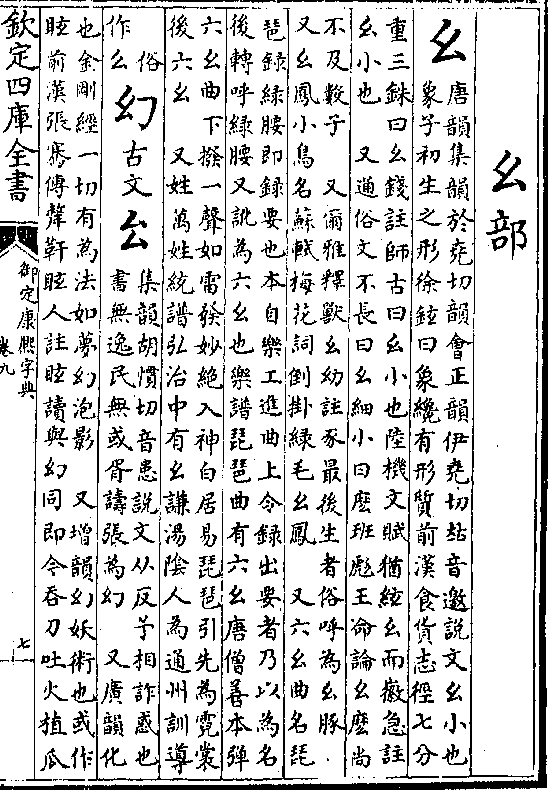 幺部
幺 唐韻集韻於堯切韻會正韻伊堯切𠀤音邀說文幺小也
象子初生之形徐鉉曰象纔有形質前漢食貨志徑七分
重三銖曰幺錢註師古曰幺小也陸機文賦猶絃幺而徽急註
幺小也 又通俗文不長曰幺細小曰麼班彪王命論幺麼尚
不及數子 又爾雅釋獸幺幼註豕最後生者俗呼為幺豚
又幺鳳小鳥名蘇軾梅花詞倒掛綠毛幺鳳 又六幺曲名琵
琶録緑腰即録要也本自樂工進曲上令録出要者乃以為名
後轉呼緑腰又訛為六幺也樂譜琵琶曲有六幺唐僧善本彈
六幺曲下撥一聲如雷發妙絕入神白居易琵琶引先為霓裳
後六幺 又姓萬姓統譜弘治中有幺謙湯陰人為通州訓導
俗
作么 幻 古文𠫔 集韻胡慣切音患說文从反予相詐惑也
書無逸民無或胥譸張為幻 又廣韻化
也金剛經一切有為法如夢幻泡影 又增韻幻妖術也或作
眩前漢張騫傳犛靬眩人註眩讀與幻同即今吞刀吐火植瓜
欽定四庫全書
御定康熙字典
卷九
七